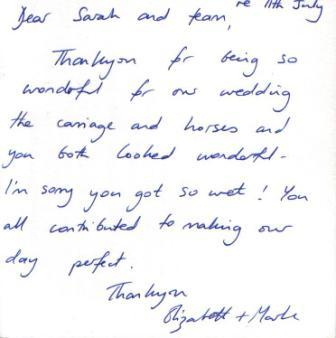 re 11th July
Dear Sarah and team,
Thankyou for being so
wonderful for our wedding
the carriage and horses and
you both looked wonderful -
I'm sorry you got so wet! You
all contributed to making our
day perfect.
Thankyou
Elizabeth + Mark